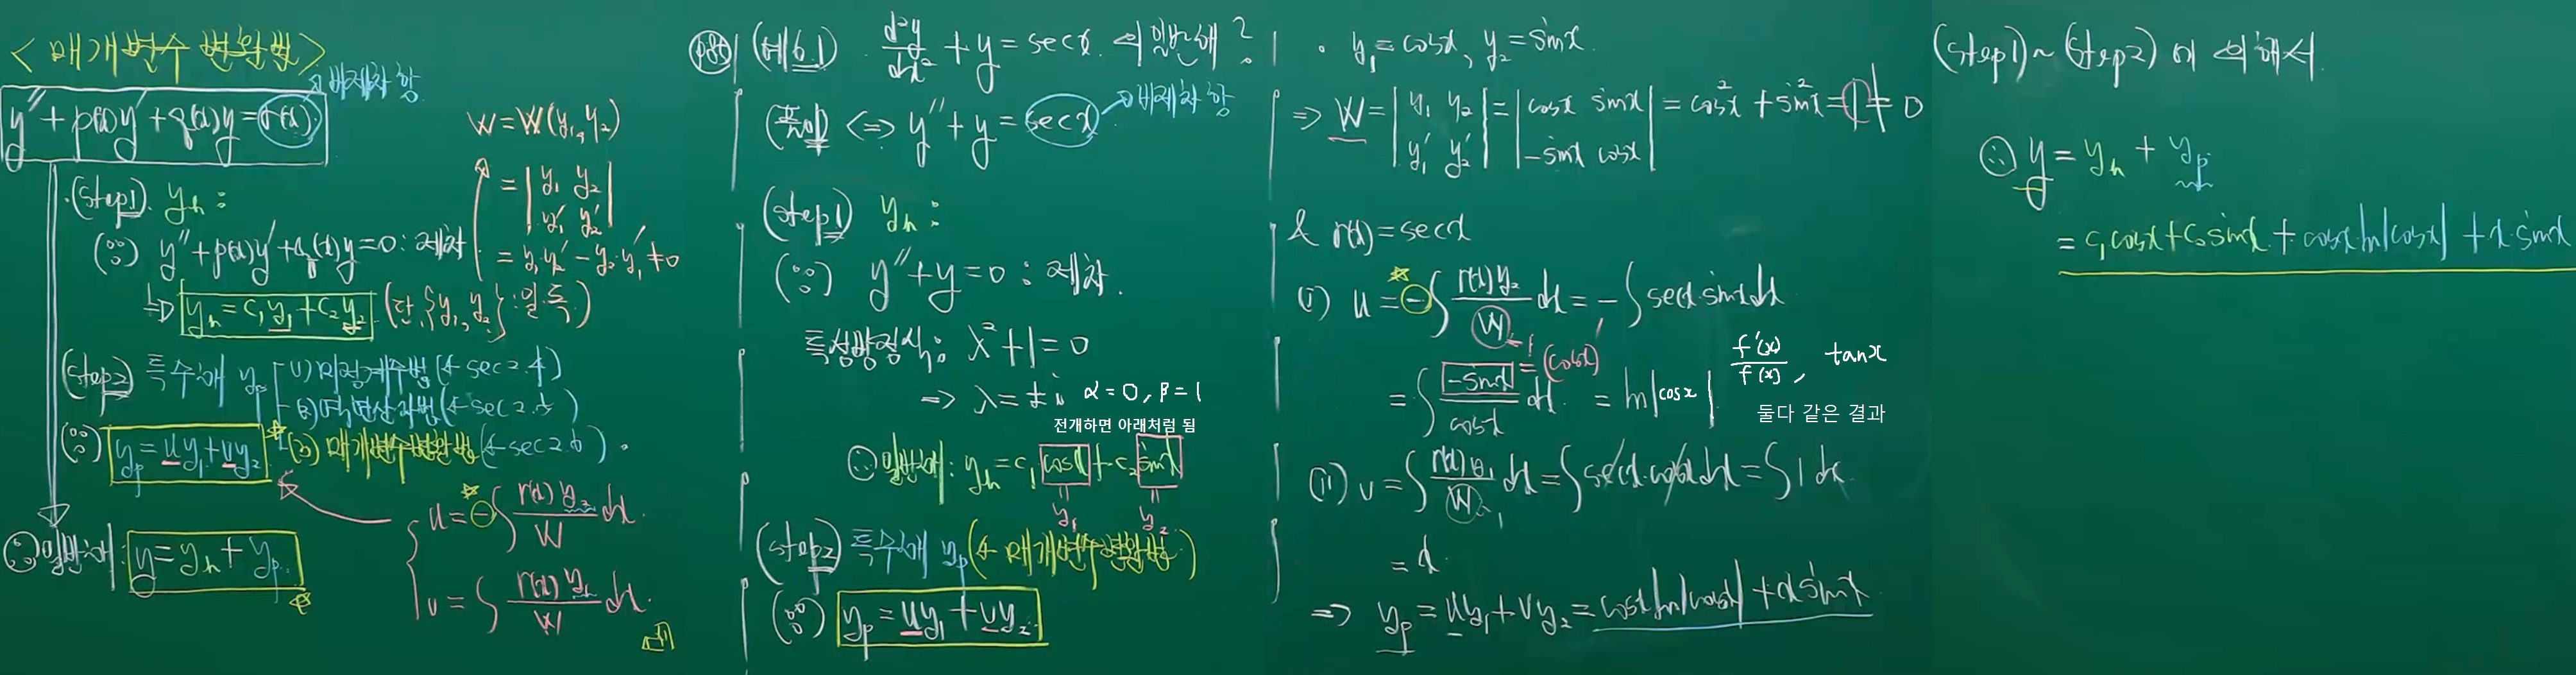 < 매개변수 변환법 >
y'' + p(x)y' + q(x)y = r(x) → 비제차 항
(step1) y_h :
(∵) y'' + p(x)y' + q(x)y = 0 : 제차
⇒ y_h = c₁y₁ + c₂y₂ (단, {y₁, y₂} : 일.독)
W = W(y₁, y₂)
= | y₁ y₂ |
| y₁' y₂' |
= y₁y₂' - y₂y₁' ≠ 0
(step2) 특수해 y_p
(1) 미정계수법 (← sec 2.4)
(2) 역연산자법 (← sec 2.5)
(3) 매개변수변환법 (← sec 2.6)
(∵) y_p = uy₁ + vy₂
u = - ∫ r(x)y₂ / W dx
v = ∫ r(x)y₁ / W dx
∴ 일반해 : y = y_h + y_p
p85 (예 6.1) d²y/dx² + y = secx 의 일반해?
(풀이) <=> y'' + y = secx → 비제차 항
(step1) y_h :
(∵) y'' + y = 0 : 제차.
특성방정식 : λ² + 1 = 0
=> λ = ±i α = 0, β = 1
전개하면 아래처럼 됨
∴ 일반해 : y_h = c₁cosx + c₂sinx
y₁ y₂
(step2) 특수해 y_p (← 매개변수변환법)
(∵) y_p = uy₁ + vy₂
· y₁ = cosx, y₂ = sinx
=> W = | y₁ y₂ | = | cosx sinx | = cos²x + sin²x = 1 ≠ 0
| y₁' y₂' | | -sinx cosx |
& r(x) = secx
(i) u = - ∫ r(x)y₂ / W dx = - ∫ secx·sinx dx
= ∫ -sinx / cosx dx = ln|cosx|
= (cosx)'
f'(x) / f(x), tanx
둘다 같은 결과
(ii) v = ∫ r(x)y₁ / W dx = ∫ secx·cosx dx = ∫ 1 dx
= x
=> y_p = uy₁ + vy₂ = cosx ln|cosx| + x sinx
(step1) ~ (step2) 에 의해서
∴ y = y_h + y_p
= c₁cosx + c₂sinx + cosx·ln|cosx| + x·sinx